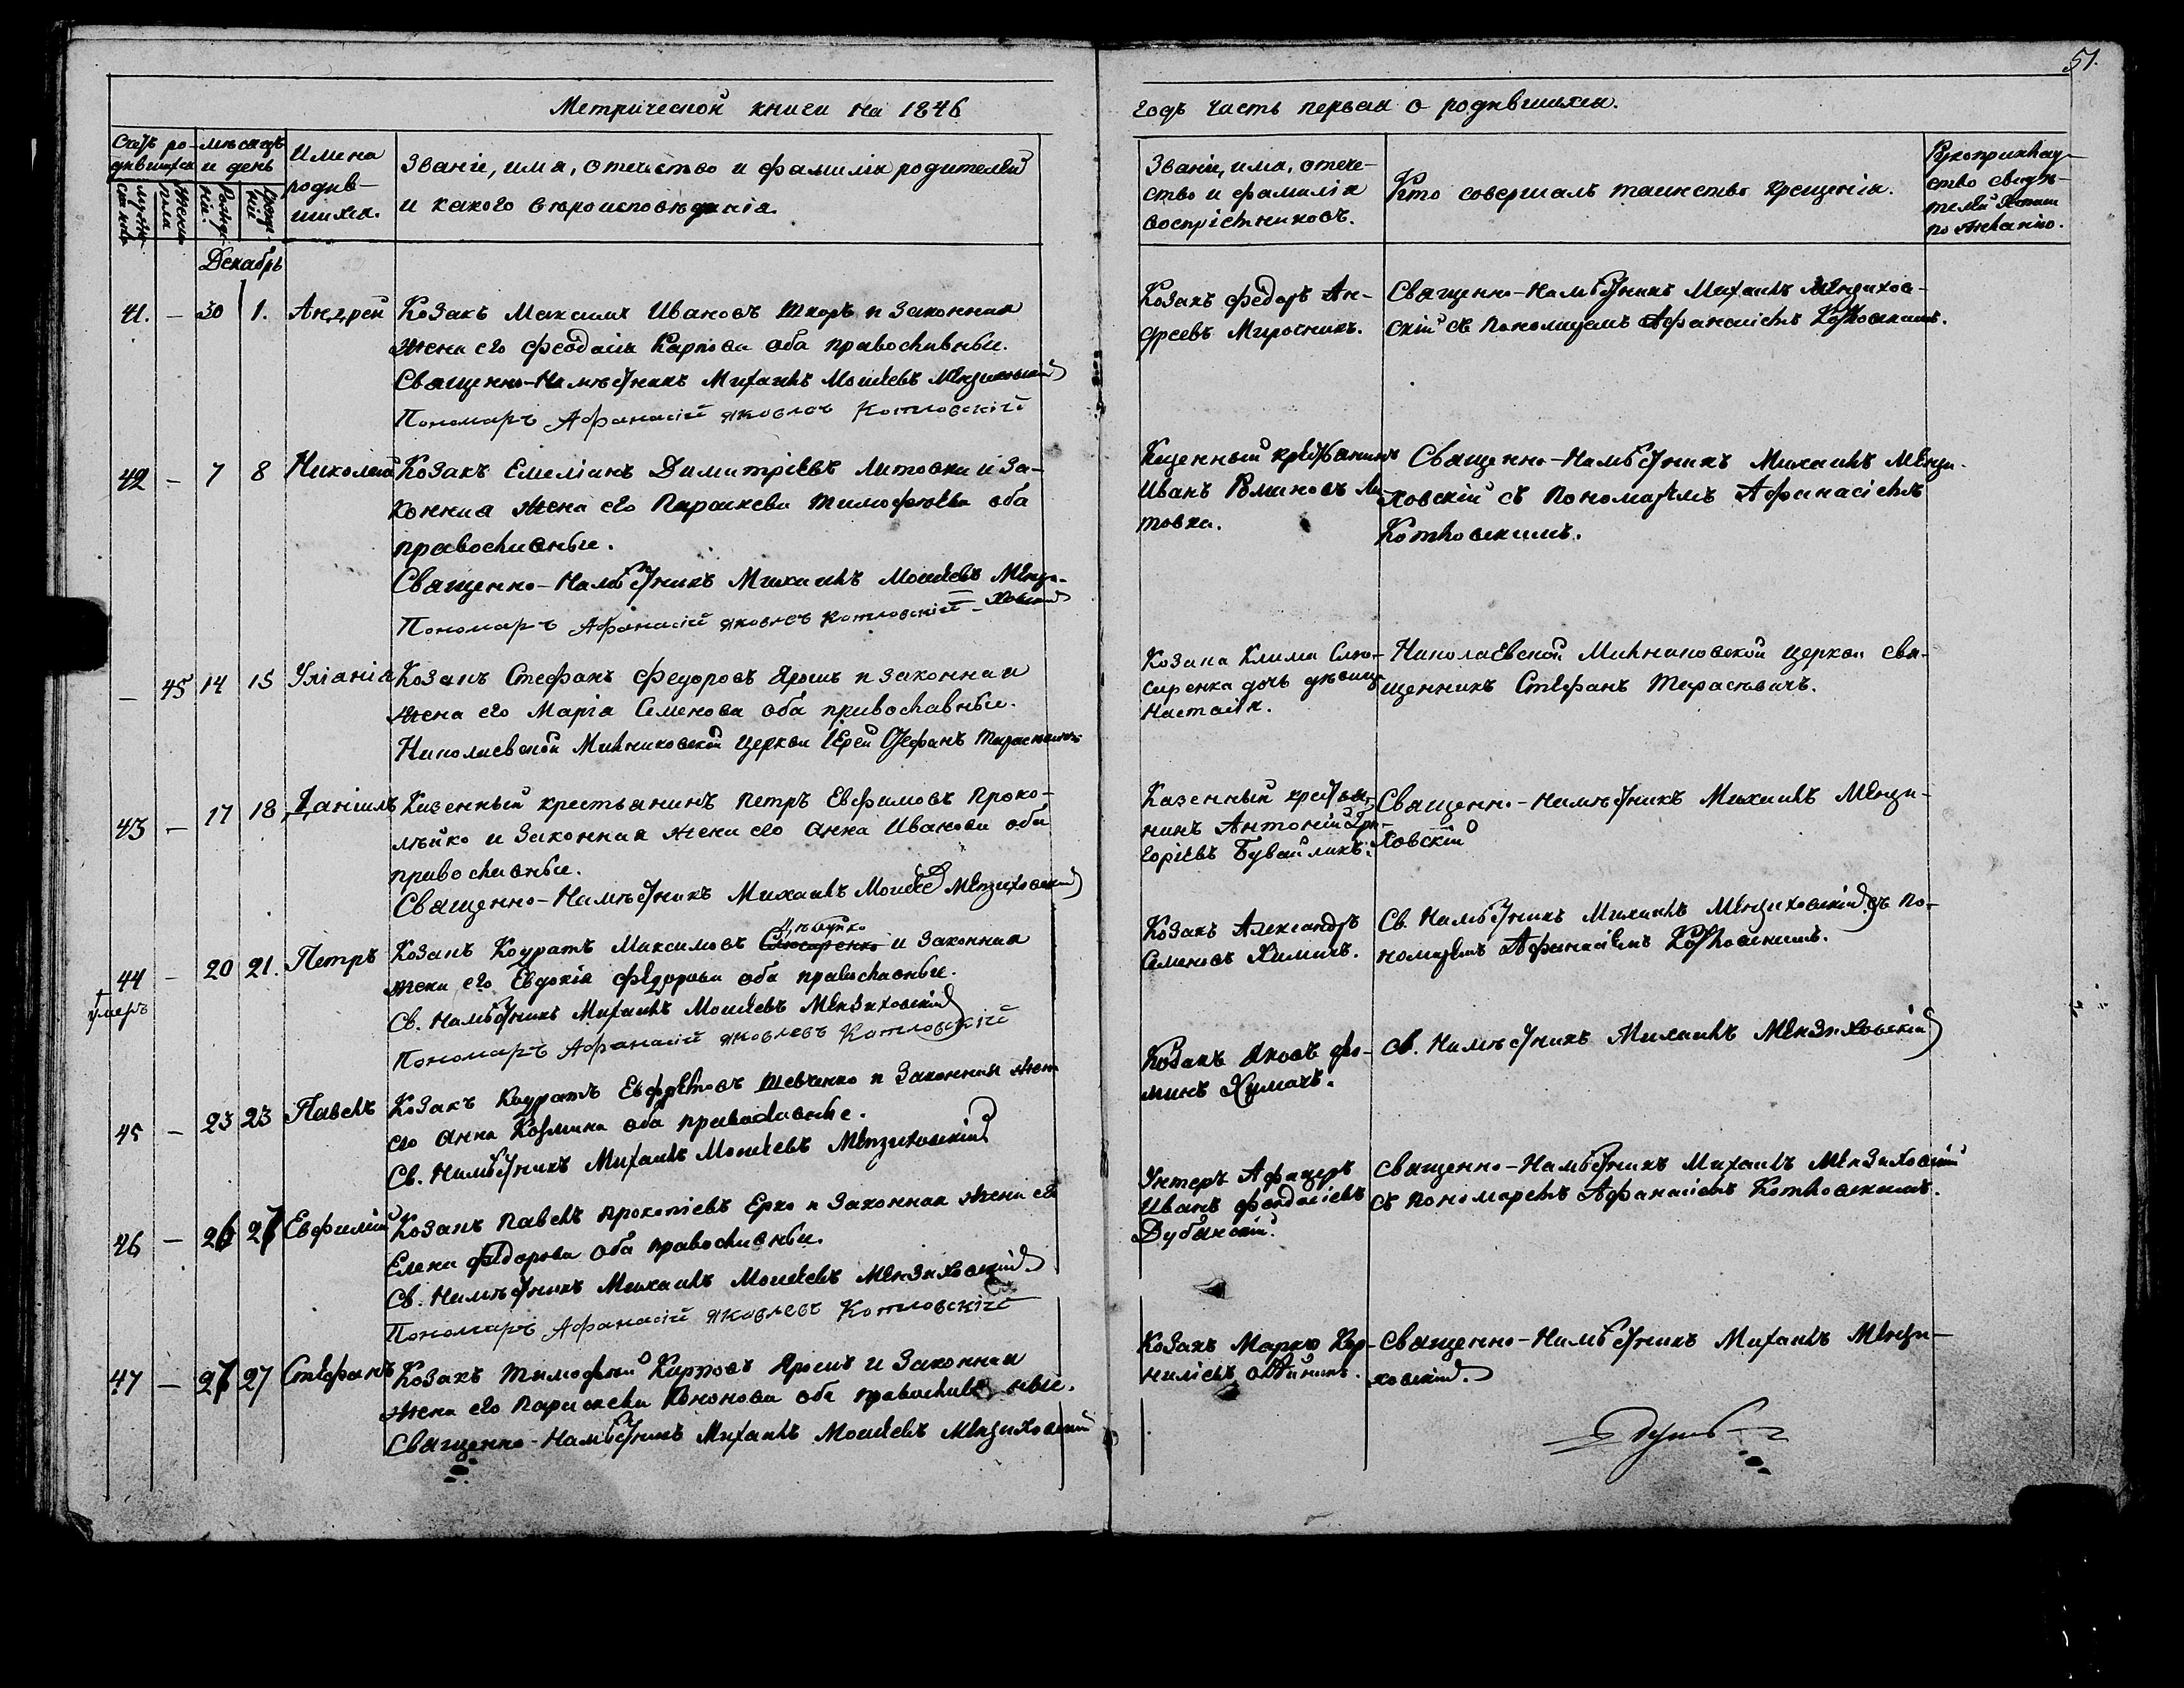 51.
Метрической книги на 1846
годъ часть первая о родившихся.
Счетъ ро-дившихся
мѣсяцъ и день
Имена родив-шихся.
Званіе, имя, отечество и фамилія родителей
и какого вѣроисповѣданія.
Званіе, имя, отече-
ство и фамилія
воспріемниковъ.
Кто совершалъ таинство крещенія.
Рукоприклад-
ство свидѣ-
телей
по желанію.
Декабрь
41. — 30 1. Андрей
Козакъ Максимъ Ивановъ Шкоръ и законная
жена его Феодосія Карпова оба православные.
Священно-Намѣстникъ Михаилъ Моисеевъ Мензиховскій
Пономарь Афанасій Яковлевъ Котловскій
Козакъ Федоръ Ан-
дреевъ Мирочникъ.
Священно-Намѣстникъ Михаилъ Мензихов-
скій съ Пономаремъ Афанасіемъ Котловскимъ.
42 — 7 8 Николай
Козакъ Емеліанъ Димитріевъ Литовка и за-
конная жена его Параскева Тимофѣева оба
православные.
Священно-Намѣстникъ Михаилъ Моисеевъ Мензи-
ховскій
Пономарь Афанасій Яковлевъ Котловскій
Казенный крестьянинъ
Иванъ Романовъ Ли-
товка.
Священно-Намѣстникъ Михаилъ Мензи-
ховскій съ Пономаремъ Афанасіемъ
Котловскимъ.
— 45 14 15 Уліанія
Козакъ Стефанъ Федоровъ Ярошъ и законная
жена его Марія Семенова оба православные.
Николаевской Церкви Іерей Стефанъ Тарасевичъ
Козака Клима Слю-
саренка дочь дѣвица
Настасія.
Николаевской Церкви свя-
щенникъ Стефанъ Тарасевичъ.
43 — 17 18 Даніилъ
Казенный крестьянинъ Петръ Евфимовъ Проко-
пѣйко и законная жена его Анна Иванова оба
православные.
Священно-Намѣстникъ Михаилъ Моисеевъ Мензиховскій
Казенный крестья-
нинъ Антоній Гри-
горіевъ Бувайликъ.
Священно-Намѣстникъ Михаилъ Мензи-
ховскій
44 — 20 21. Петръ
умеръ
Козакъ Кондратъ Максимовъ Слюсаренко и законная
жена его Евдокія Федорова оба православные.
Св. Намѣстникъ Михаилъ Моисеевъ Мензиховскій
Пономарь Афанасій Яковлевъ Котловскій
Козакъ Александръ
Семеновъ Химичъ.
Св. Намѣстникъ Михаилъ Мензиховскій съ По-
номаремъ Афанасіемъ Котловскимъ.
45 — 23 23 Павелъ
Козакъ Кондратъ Шевченко и законная жена
его Анна Козмина оба православные.
Св. Намѣстникъ Михаилъ Моисеевъ Мензиховскій
Козакъ Яковъ Фо-
минъ Хумачъ.
Св. Намѣстникъ Михаилъ Мензиховскій
46 — 26 27 Евфимій
Козакъ Павелъ Прокопіевъ Ерко и законная жена его
Елена Федорова оба православные.
Св. Намѣстникъ Михаилъ Моисеевъ Мензиховскій
Пономарь Афанасій Яковлевъ Котловскій
Унтеръ Афицеръ
Иванъ Феодосіевъ
Дубанскій.
Священно-Намѣстникъ Михаилъ Мензиховскій
съ Пономаремъ Афанасіемъ Котловскимъ.
47 — 27 27 Стефанъ
Козакъ Тимофей Карповъ Ярошъ и законная
жена его Параскева Кононова оба православные.
Священно-Намѣстникъ Михаилъ Моисеевъ Мензиховскій
Козакъ Марко Кор-
ниліевъ Олійникъ.
Священно-Намѣстникъ Михаилъ Мензи-
ховскій.